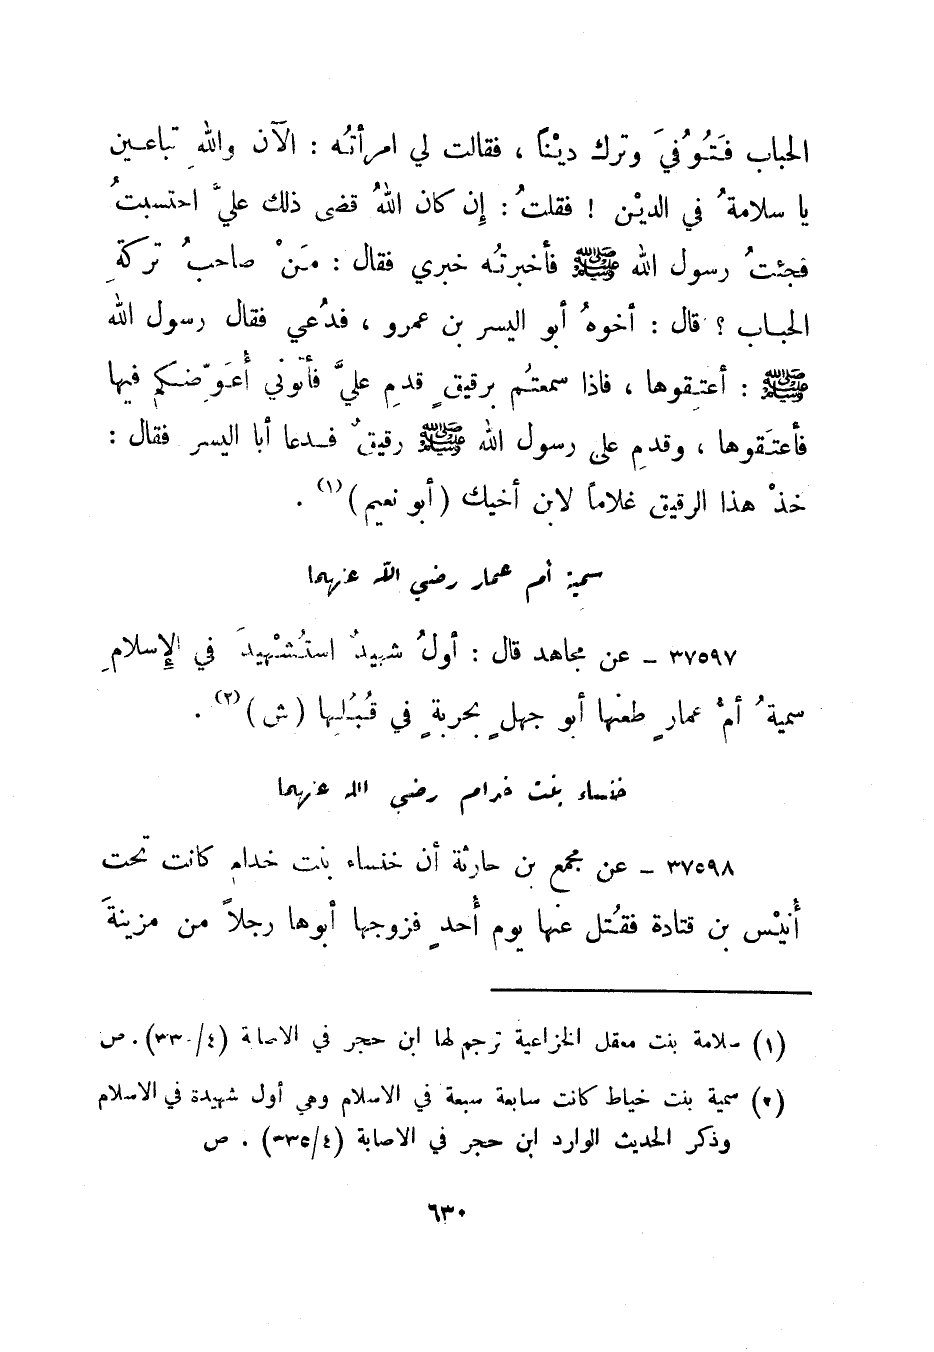 الحباب فَتُوُفيَ وترك ديْناً ، فقالت لي امرأتُه : الآن واللهِ تباعين
يا سلامةُ في الديْن ! فقلتُ : إِن كان اللهُ قضى ذلك عليَّ احتسبتُ
فجئتُ رسول الله ﷺ فأخبرتُه خبري فقال : مَنْ صاحبُ تركةِ
الحباب ؟ قال : أخوهُ أبو اليسر بن عمرو ، فدُعي فقال رسول الله
ﷺ : أعتِقوها ، فاذا سمعتُم برقيقٍ قدمِ عليَّ فأتوني أُعَوِّضكم فيها
فأعتَقوها ، وقدمِ على رسول الله ﷺ رقيقٌ فدعا أبا اليسر فقال :
خذْ هذا الرقيق غلاماً لابن أخيك (أبو نعيم)(١) .
سمية أم عمار رضي الله عنهما
٣٧٥٩٧ ـ عن مجاهد قال : أولُ شهيدٌ استُشْهِدَ في الإِسلامِ
سميةُ أمُ عمارٍ طعنها أبو جهلٍ بحربةٍ في قُبُلِها (ش)(٢) .
خنساء بنت خدام رضي الله عنهما
٣٧٥٩٨ ـ عن مجمع بن حارثة أن خنساء بنت خدامِ كانت تحت
أُنيْس بن قتادة فقُتل عنها يوم أُحدٍ فزوجها أبوها رجلاً من مزينةَ
(١) سلامة بنت معقل الخزاعية ترجم لها ابن حجر في الاصابة (٤/٣٣٠). ص
(٢) سمية بنت خياط كانت سابعة سبعة في الاسلام وهي أول شهيدة في الاسلام
وذكر الحديث الوارد ابن حجر في الاصابة (٤/٣٣٥) . ص
٦٣٠